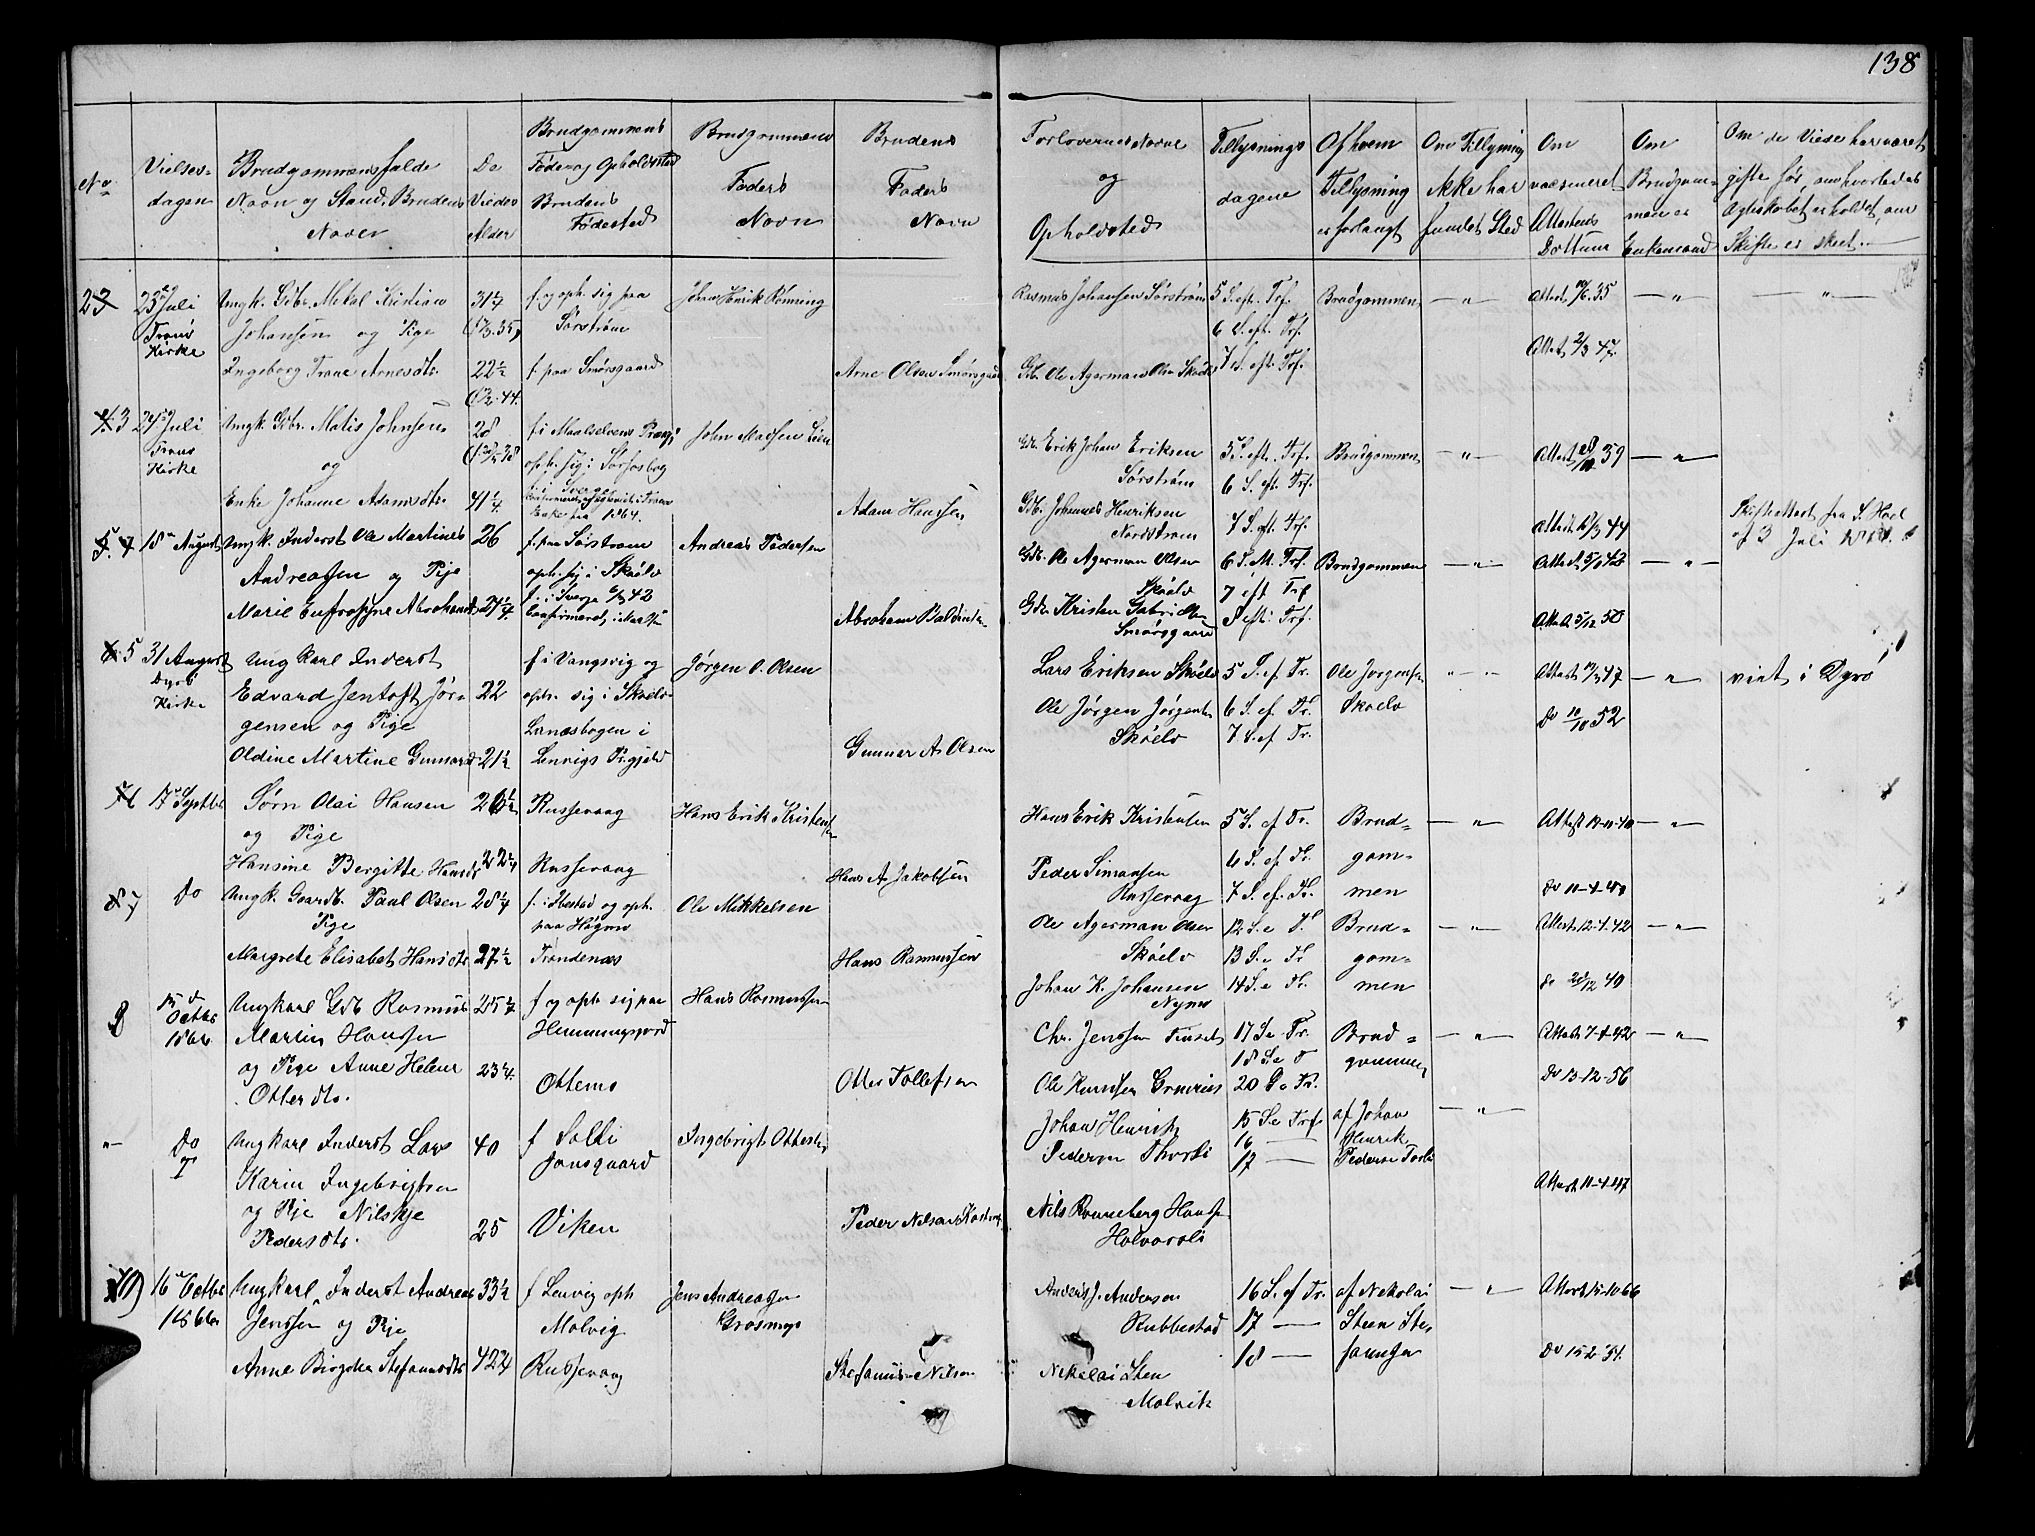 138
No
Vielses-
dagen
Brudgommens fulde
Navn og Stand, Brudens
Navn
De
Viedes
Alder
Brudgommens
Føde og Opholdssted
Brudens
Fødested
Brudgommens
Faders
Navn
Brudens
Faders
Navn
Forlovernes Navne
og
Opholdsted
Tillysnings
dagene
Af hvem
Tillysning
er forlangt
Om Tillysning
ikke har
fundet Sted
Om
vaccineret
Attestens
Dattum
Om
Brudgom-
men er
Enkemand
Om de Viede har været
gifte før, om hvorledes
Ægteskabet er hævet, om
Skifte er skeet.
23
Juli
Kirke
Ungk. Gbr. Mikal Kristian
Johansen og Pige
Ingeborg Trane Arnesdtr.
22½
f og oph. sig paa
Sørstrøm
f. paa Smørsgaard
Johan Henrik Rønning
Arne Olsen Smørsgaard
Rasmus Johansen Sørstrøm
Gb. Ole Agerman Olsen Skøelv
5 S. eft. Trf.
6 S. eft. Trf.
7 S. eft. Trf.
Brudgommen
— " —
Attest 35
Attest 2/3 47
— " —
— " —
3
Juli
Kirke
Ungk. Gbr. Matis Johnsen
og
Enke Johanne Adamsdtr.
28
41¼
f. i Maalselvens Præstgj
oph. sig i Sørfosbog
f. i Sverge
Enke fra 1864.
John Madsen Lien
Adam Hansen
Gb. Erik Johan Eriksen
Sørstrøm
Gb. Johannes Henriksen
Nordstrøm
5 S. eft. Trf.
6 S. eft. Trf.
7 S. eft. Trf.
Brudgommen
— " —
Attest 39
Attest 44
— " —
Skifteattest fra S. Hoel
af 3 Juli
18 August
Ungk. Inderst Ole Martines
Andreassen og Pige
Marie Eufrosyne Abrahamsd
26
24¼
f. paa Sørstrøm
oph. sig i Skøelv
f. i Sverge 42
Andreas Pedersen
Abraham Baldintin
Gb. Ole Agerman Olsen
Skøelv
Gbr Kristen Gabrielsen
Smørsgaard
6 S. eft. Trf.
7 eft Trf
8 eft. Trf.
Brudgommen
— " —
Attest
Attest 5/12 50
— " —
5
31 August
Dyrø
Kirke
Ungkarl Inderst
Edvard Jentoft Jør-
gensen og Pige
Oldine Martine Gunnarsd
22
21½
f i Vangsvig og
oph. sig i Skøelv
Lanæsbogen i
Lenvigs Prgjeld
Jørgen O. Olsen
Gunnar A. Olsen
Lars Eriksen Skøelv
Ole Jørgen Jørgensen
Skøelv
5 S. ef Tr.
6 S. ef. Tr.
7 S. ef Tr.
Ole Jørgensen
Skøelv
— " —
Attest 47
Do 52
— " —
viet i Dyrø
17 Septbr
Sørn Olai Hansen
og Pige
Hansine Bergitte Hansd
26½
Russevaag
Russevaag
Hans Erik Kristensen
Hans A Jakobsen
Hans Erik Kristensen
Peder Simonsen
Russevaag
5 S. ef Tr.
6 S. ef. Tr.
7 S. ef. Tr.
Brud=
gom=
men
— " —
Attest
— " —
7
Do
Ungk. Gaardb. Paul Olsen
Pige
Margrete Elisabet Hansdtr
27½
f. i Ibestad og oph.
paa Høgmo
Trondenæs
Ole Mikkelsen
Hans Rasmussen
Ole Agerman Olsen
Skøelv
Johan K. Johansen
Nymo
12 S. e Tr
13 S. e Tr
14 S. e Tr.
Brud=
gom=
men
— " —
Attest 12-4-42
Do 49
— " —
8
15 d
Octbr
1866
Ungkarl Gdb Rasmus
Martin Hansen
og Pige Anne Helene
Ottersdtr.
f og oph sig paa
Hemmingsjord
Ottemo
Hans Rasmussen
Otter Tollefsen
Chr. Jenssen Finset
Ole Knudsen
17 S. e Tr.
18 S. e T
20 S e Tr.
Brud=
gommen
— " —
Attest 7-4-42
Do 13-12-56
— " —
Do
Ungkarl Inderst Lars
Karin Ingebrigtsen
og Pige Nilskje
Pedersdtr.
40
25
f Solli
Jonsgaard
Viken
Ingebrigt Ottesen
Peder Nilsen
Johan Henrik
Pedersen Thorli
Nils Ronneberg Hansen
Halvarsli
15 S. e Trf
16 —
17 —
af Johan
Henrik
Pedersen Torli
— " —
Attest 11-4-47
10)
16 Octbr
1866
Ungkarl Inderst Andreas
Jenssen og Pige
Anne Birgitha Stefanusdtr
33½
42¾
f Lenvig oph
Malvig
Russevaag
Jens Andreassen
Grasmyr
Stefanus Nilsen
Anders J. Andersen
Rubbestad
Nikolai Sten
Malvik
16 S. ef Tr.
17 —
18 —
af Nikolai
Steen Ste-
fansen
— " —
Attest 15-10 66
Do 15-2-34.